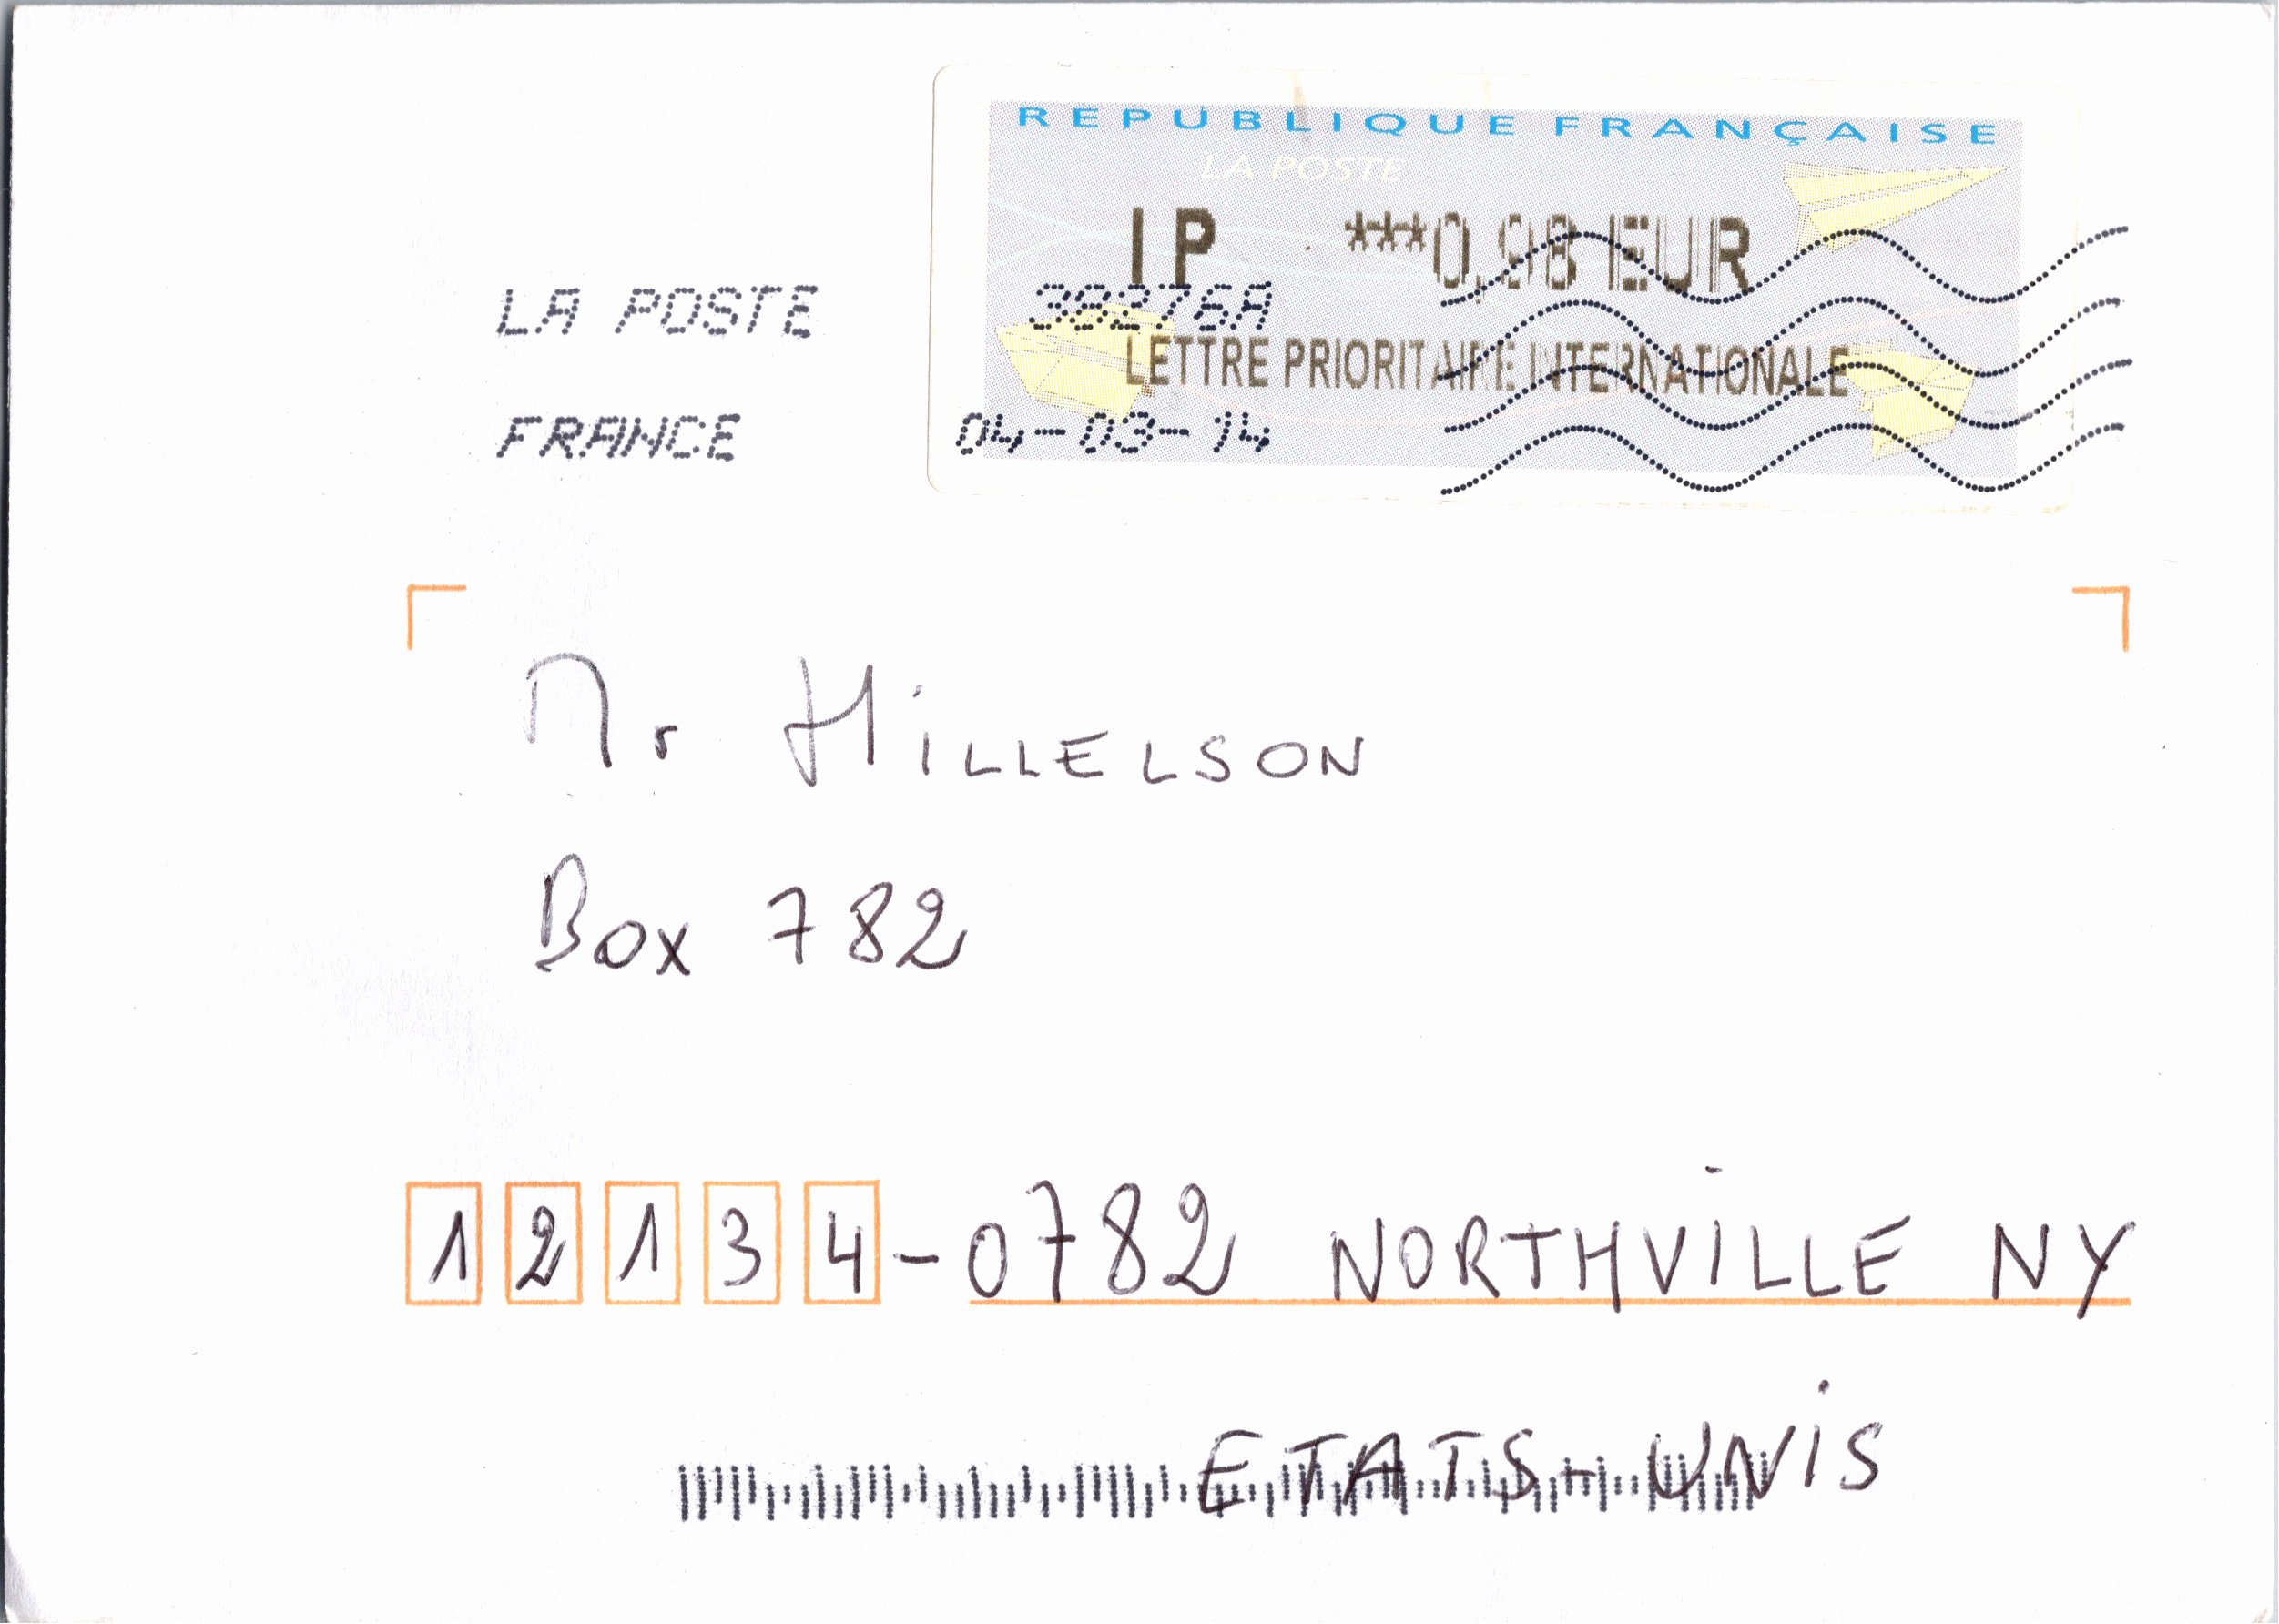 REPUBLIQUE FRANÇAISE
LA POSTE
IP ***0,98 EUR
LA POSTE 38276A
LETTRE PRIORITAIRE INTERNATIONALE
FRANCE 04-03-14
Mr HiLLELSON
Box 782
12134-0782 NORTHViLLE NY
ETATS-UNiS